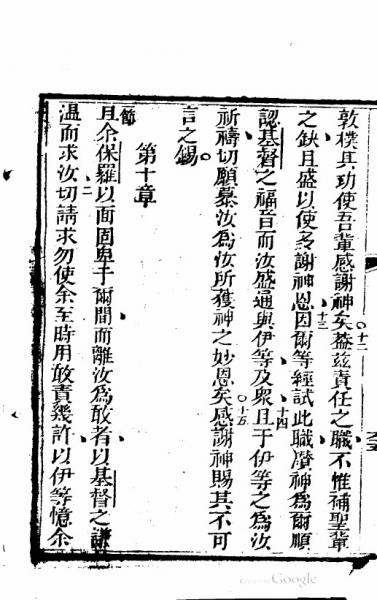 敦樸其功使吾輩感謝神矣。十二蓋茲責任之職不惟補聖輩
之缺且盛以使多謝神恩十三因爾等經試此職讚神爲爾順
認基督之福音而汝盛通與伊等及衆十四且于伊等之爲汝
祈禱切願慕汝爲汝所獲神之妙恩矣。十五感謝神賜其不可
言之錫。
第十章
節且余保羅以面固卑于爾間而離汝爲敢者以基督之謙
溫而求汝二切請求勿使余至時用敢責幾許以伊等憶余
Google